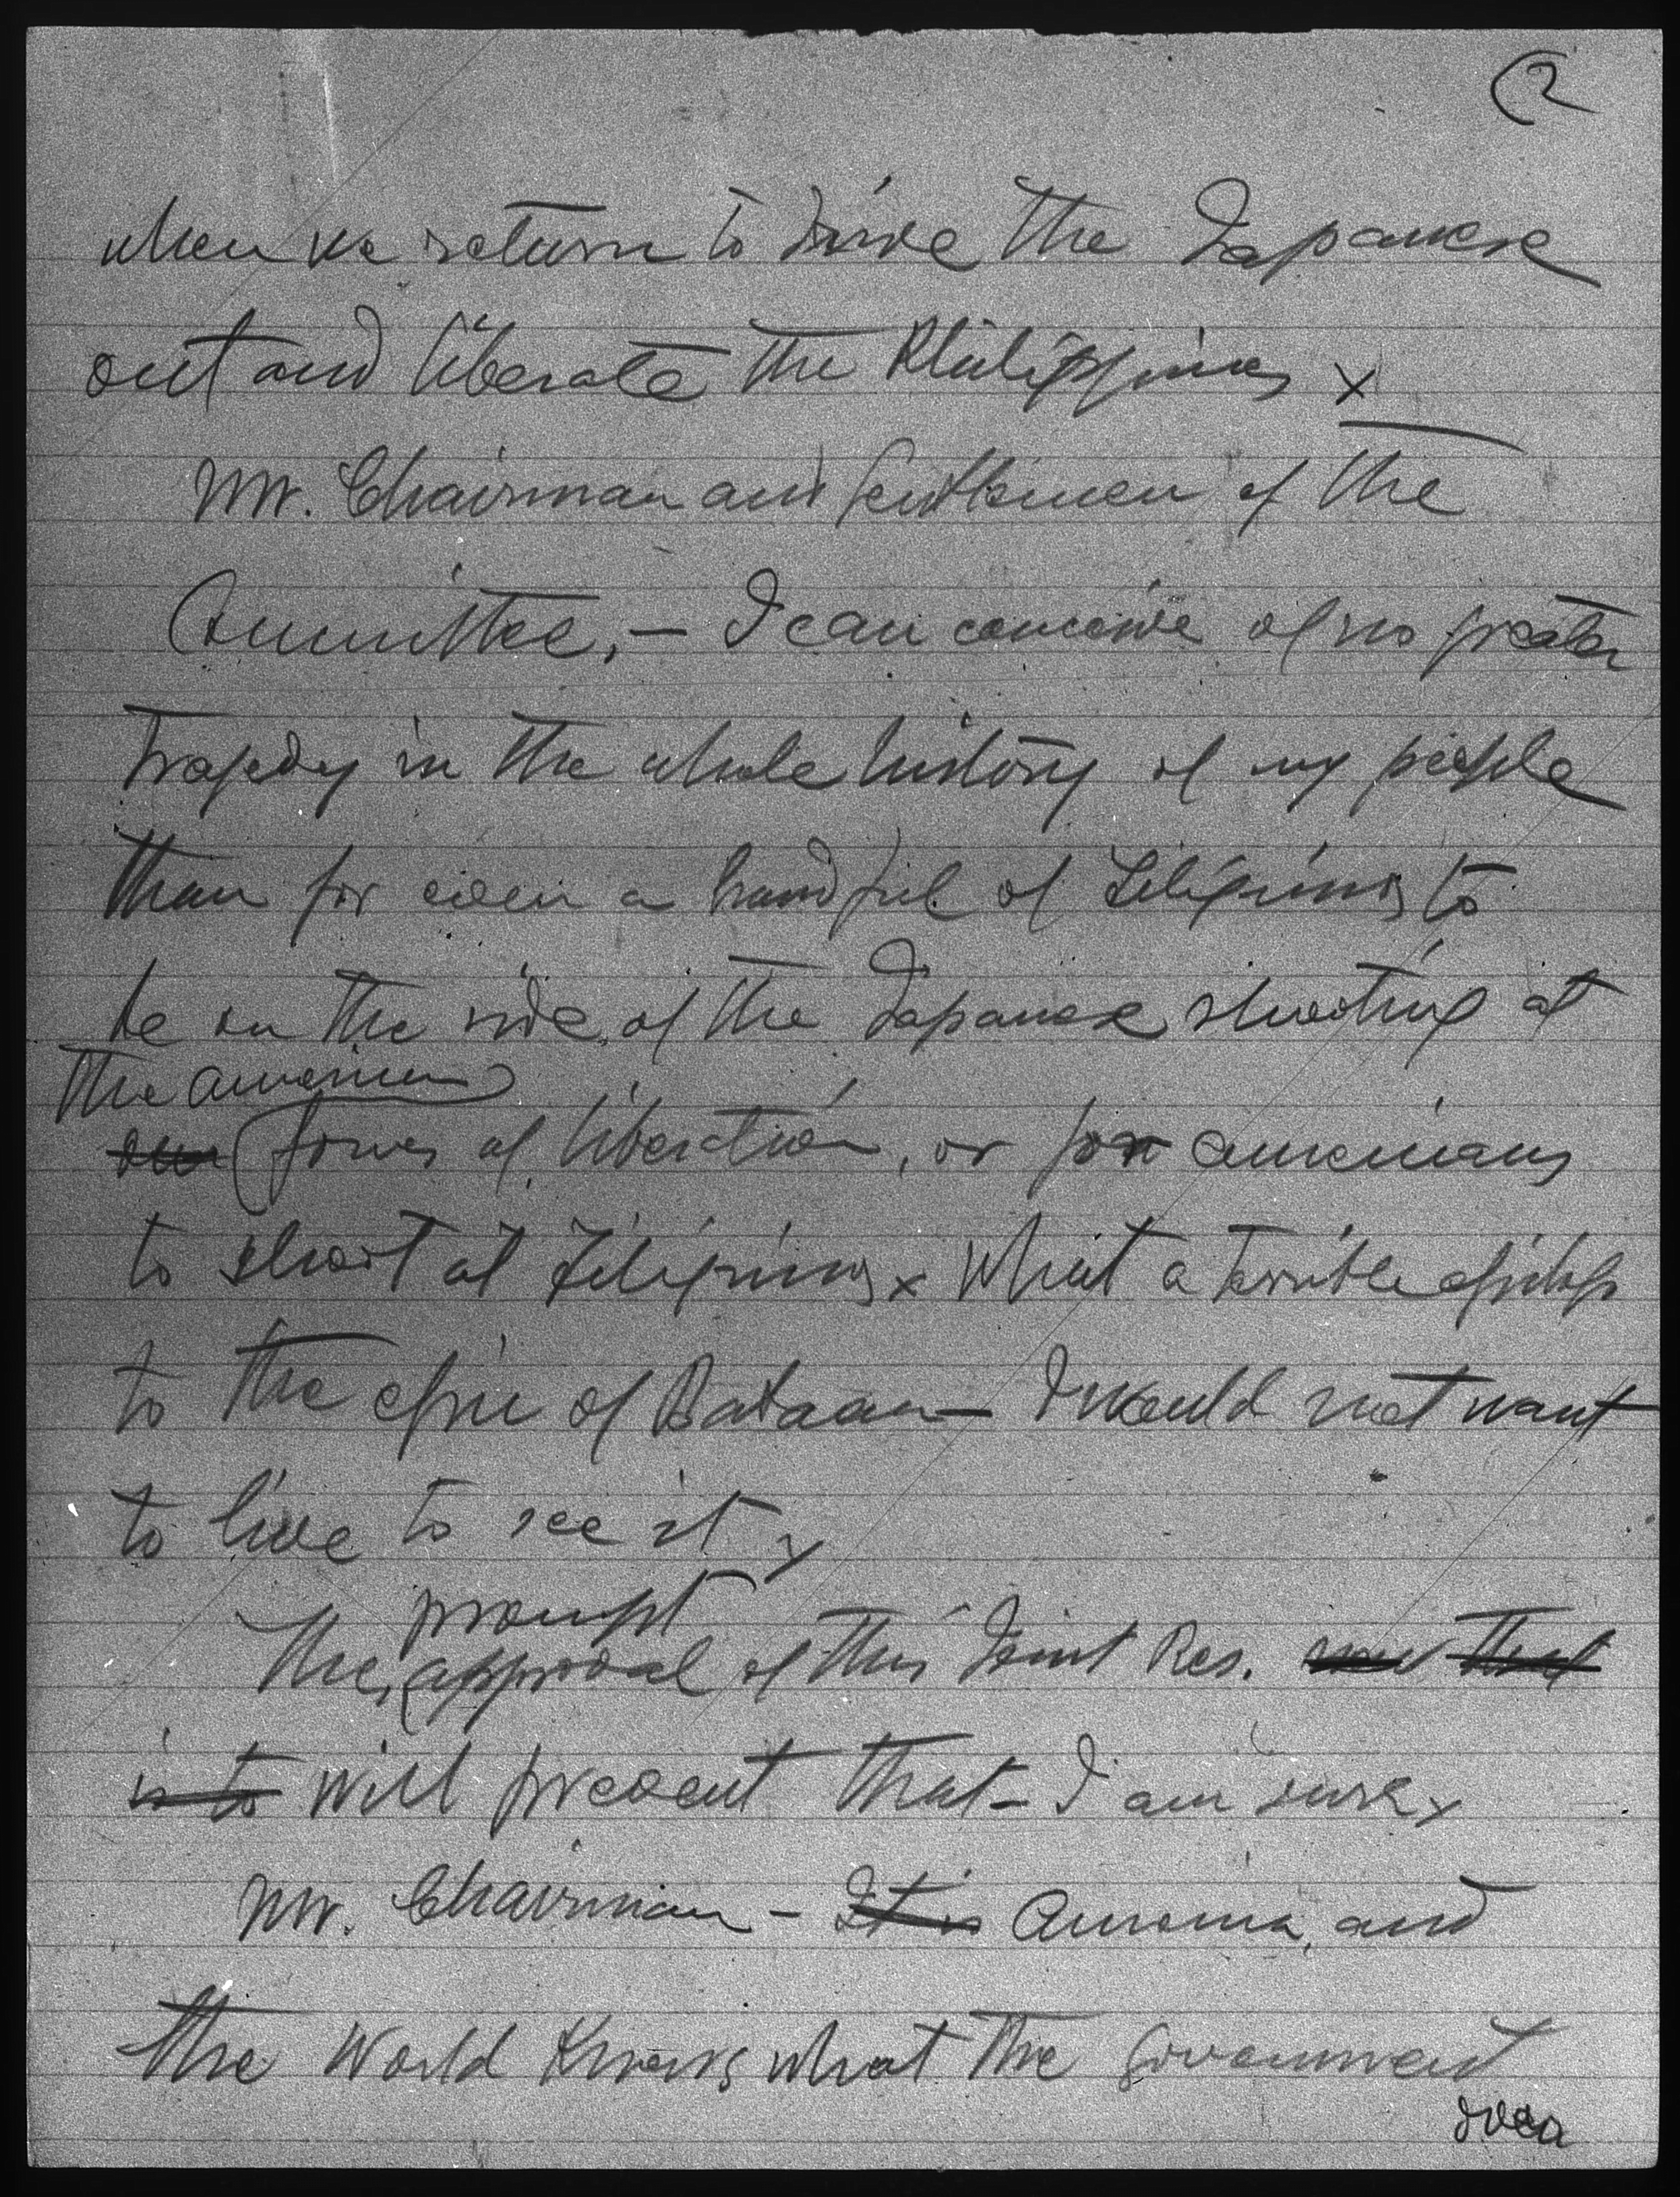 (2
when we return to drive the Japanese
out and liberate the Philippines x
Mr. Chairman and Gentlemen of the
Committee, — I can conceive of no greater
tragedy in the whole history of my people
than for even a handful of Filipinos to
be on the side of the Japanese shooting at
the American
our forces of liberation, or for Americans
to shoot at Filipinos x What a terrible epilog
to the epic of Bataan — I would not want
to live to see it x
prompt
The approval of this Joint Res. now that
is to will prevent that — I am sure x
Mr. Chairman — It is America, and
the World knows what the Government
over